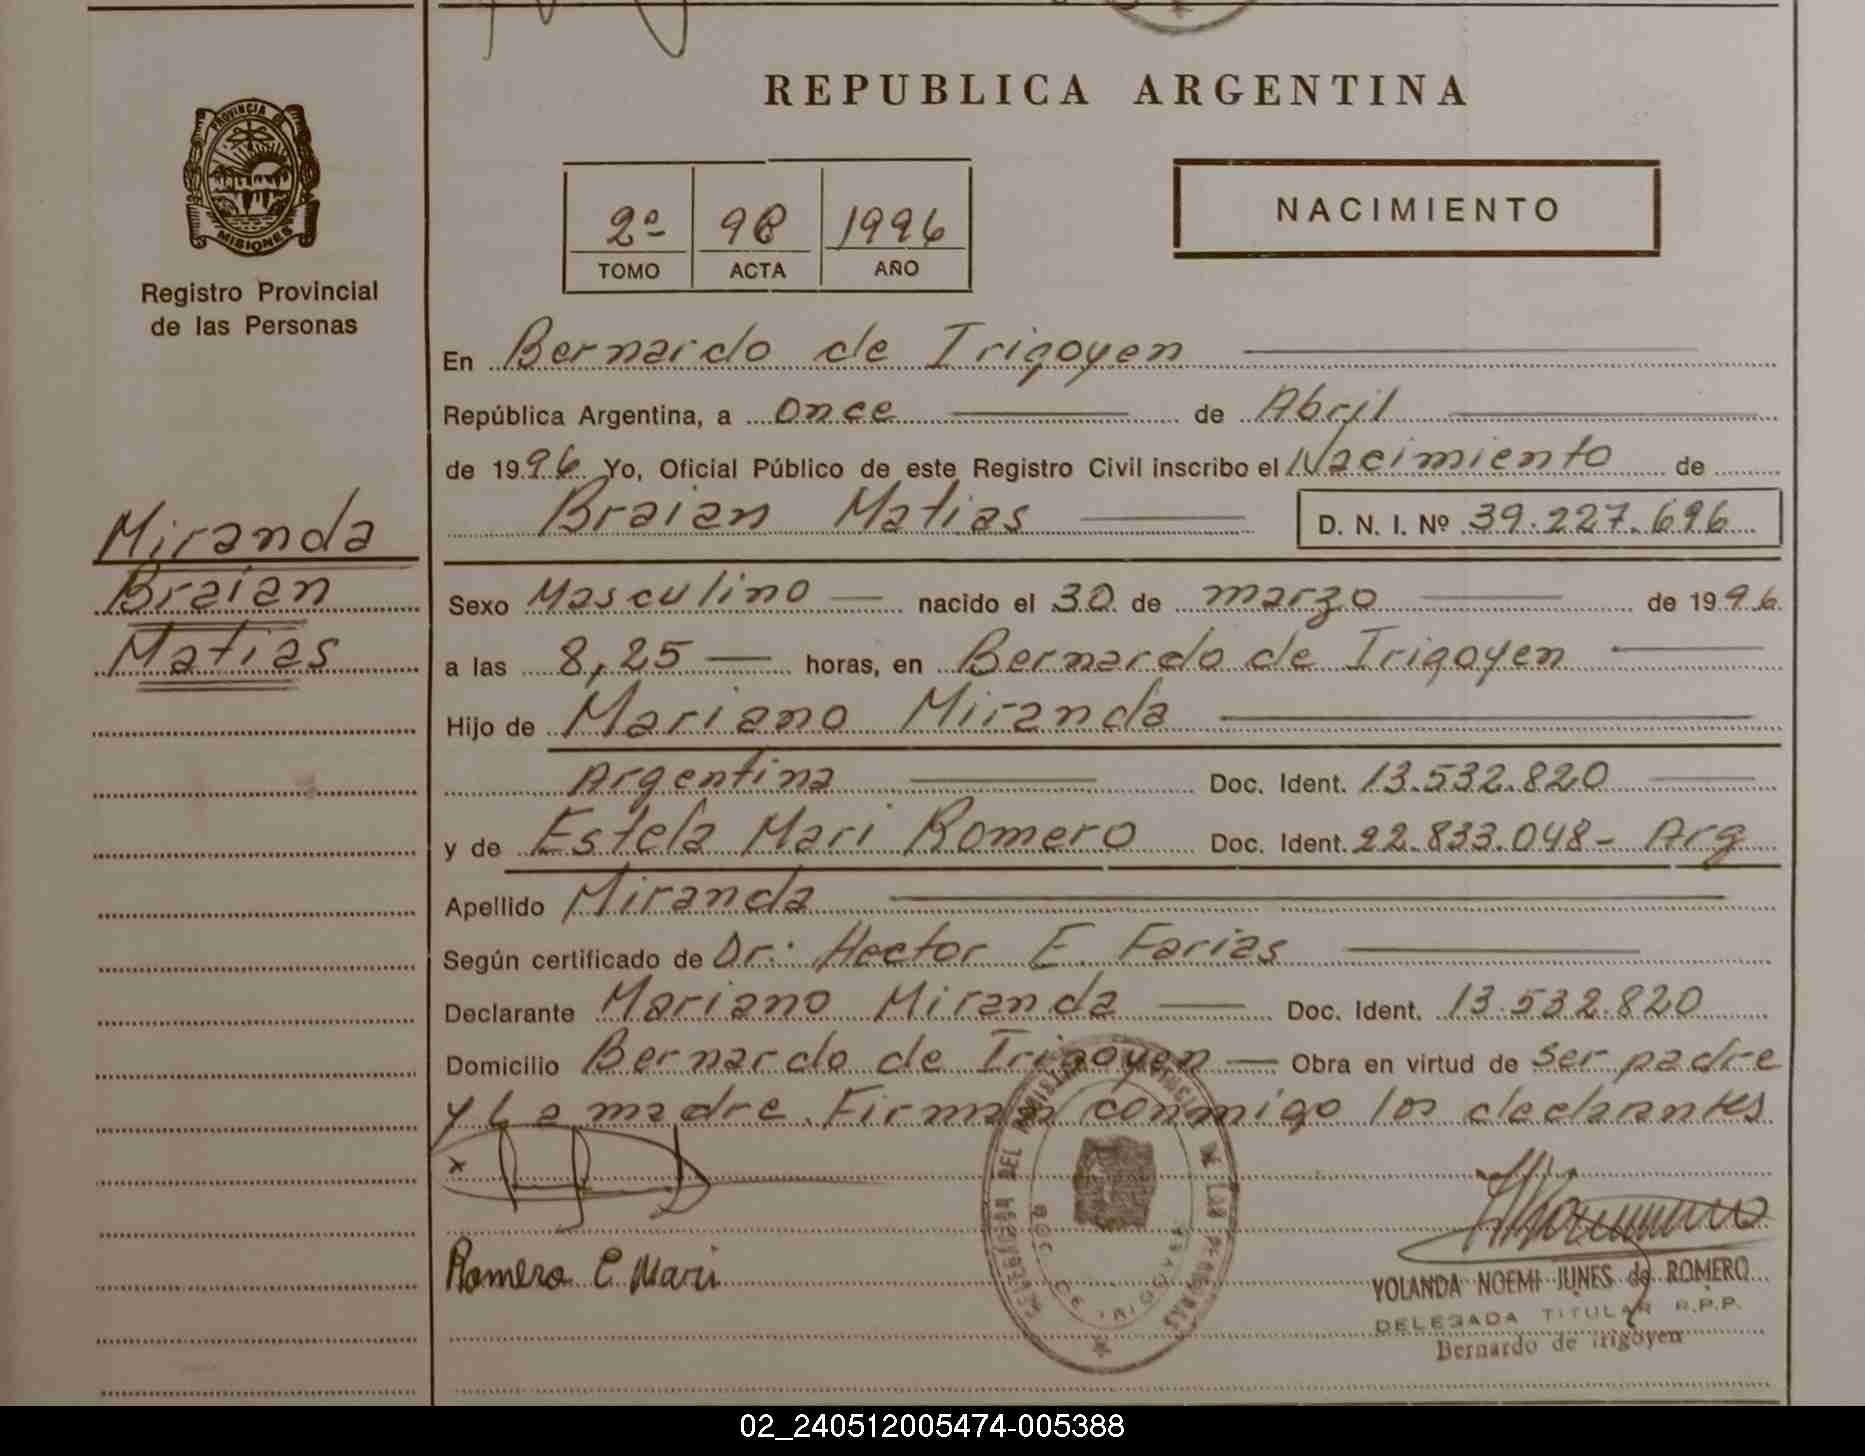 REPUBLICA ARGENTINA
PROVINCIA DE
MISIONES
Registro Provincial
de las Personas
2º 98 1996
TOMO ACTA AÑO
NACIMIENTO
En Bernardo de Irigoyen
República Argentina, a once de Abril
de 1996 Yo, Oficial Público de este Registro Civil inscribo el Nacimiento de
Braian Matias D. N. I. Nº 39.227.696
Miranda
Braian
Matias
Sexo Masculino nacido el 30 de marzo de 1996
a las 8,25 horas, en Bernardo de Irigoyen
Hijo de Mariano Miranda
Argentina Doc. Ident. 13.532.820
y de Estela Mari Romero Doc. Ident. 22.833.048- Arg
Apellido Miranda
Según certificado de Dr: Hector E. Farias
Declarante Mariano Miranda Doc. Ident. 13.532.820
Domicilio Bernardo de Irigoyen Obra en virtud de ser padre
y La madre. Firman conmigo los declarantes
Romero E. Mari
YOLANDA NOEMI JUNES de ROMERO
DELEGADA TITULAR R.P.P.
Bernardo de irigoyen
02_240512005474-005388